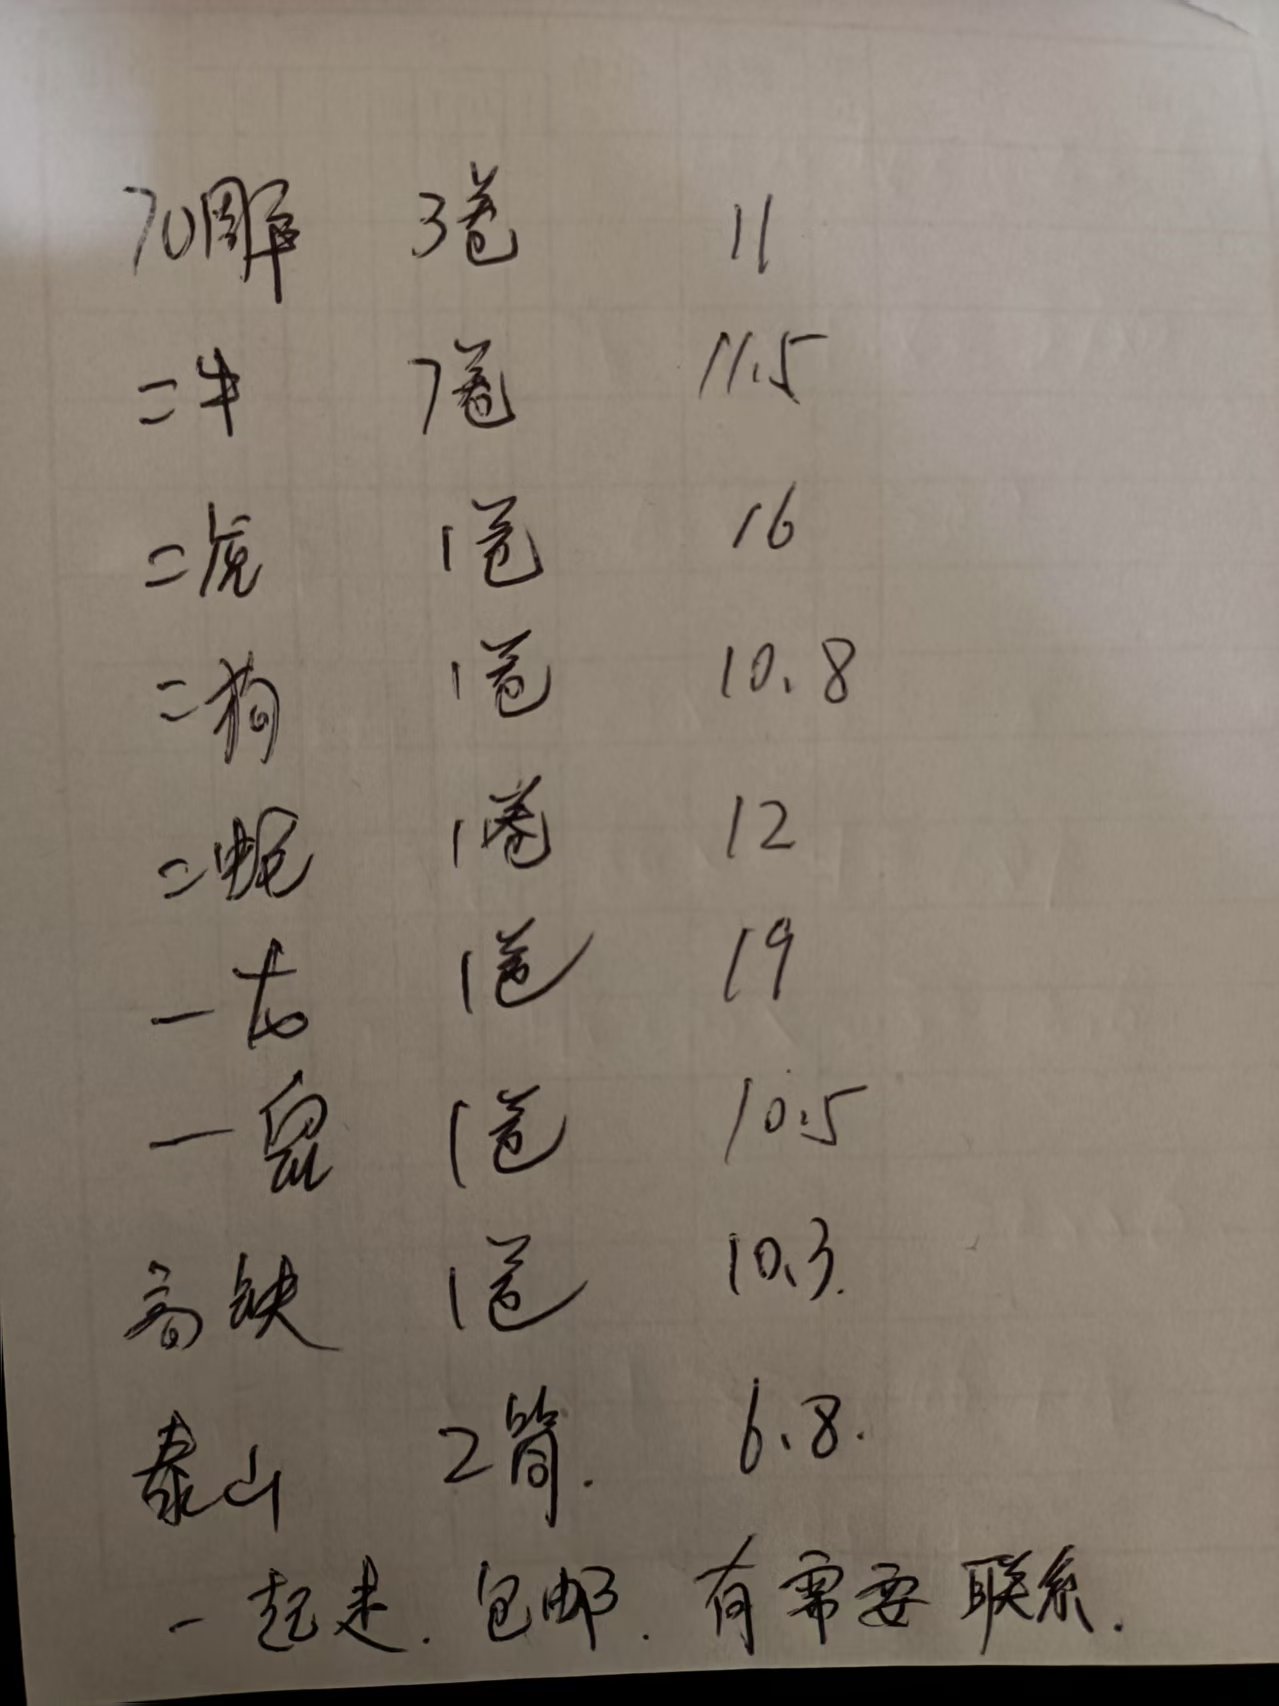 70周年 3卷 11
二牛 7卷 11.5
二虎 1卷 16
二狗 1卷 10.8
二蛇 1卷 12
一龙 1卷 19
一鼠 1卷 10.5
高铁 1卷 10.3.
泰山 2筒. 6.8.
一起走. 包邮. 有需要联系.